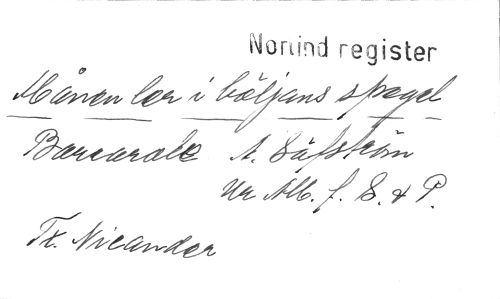 Norlind register
Månen ler i böljans spegel
Barcarole A. Säfström
Ur Alb. f. S. & P.
Tx. Nicander